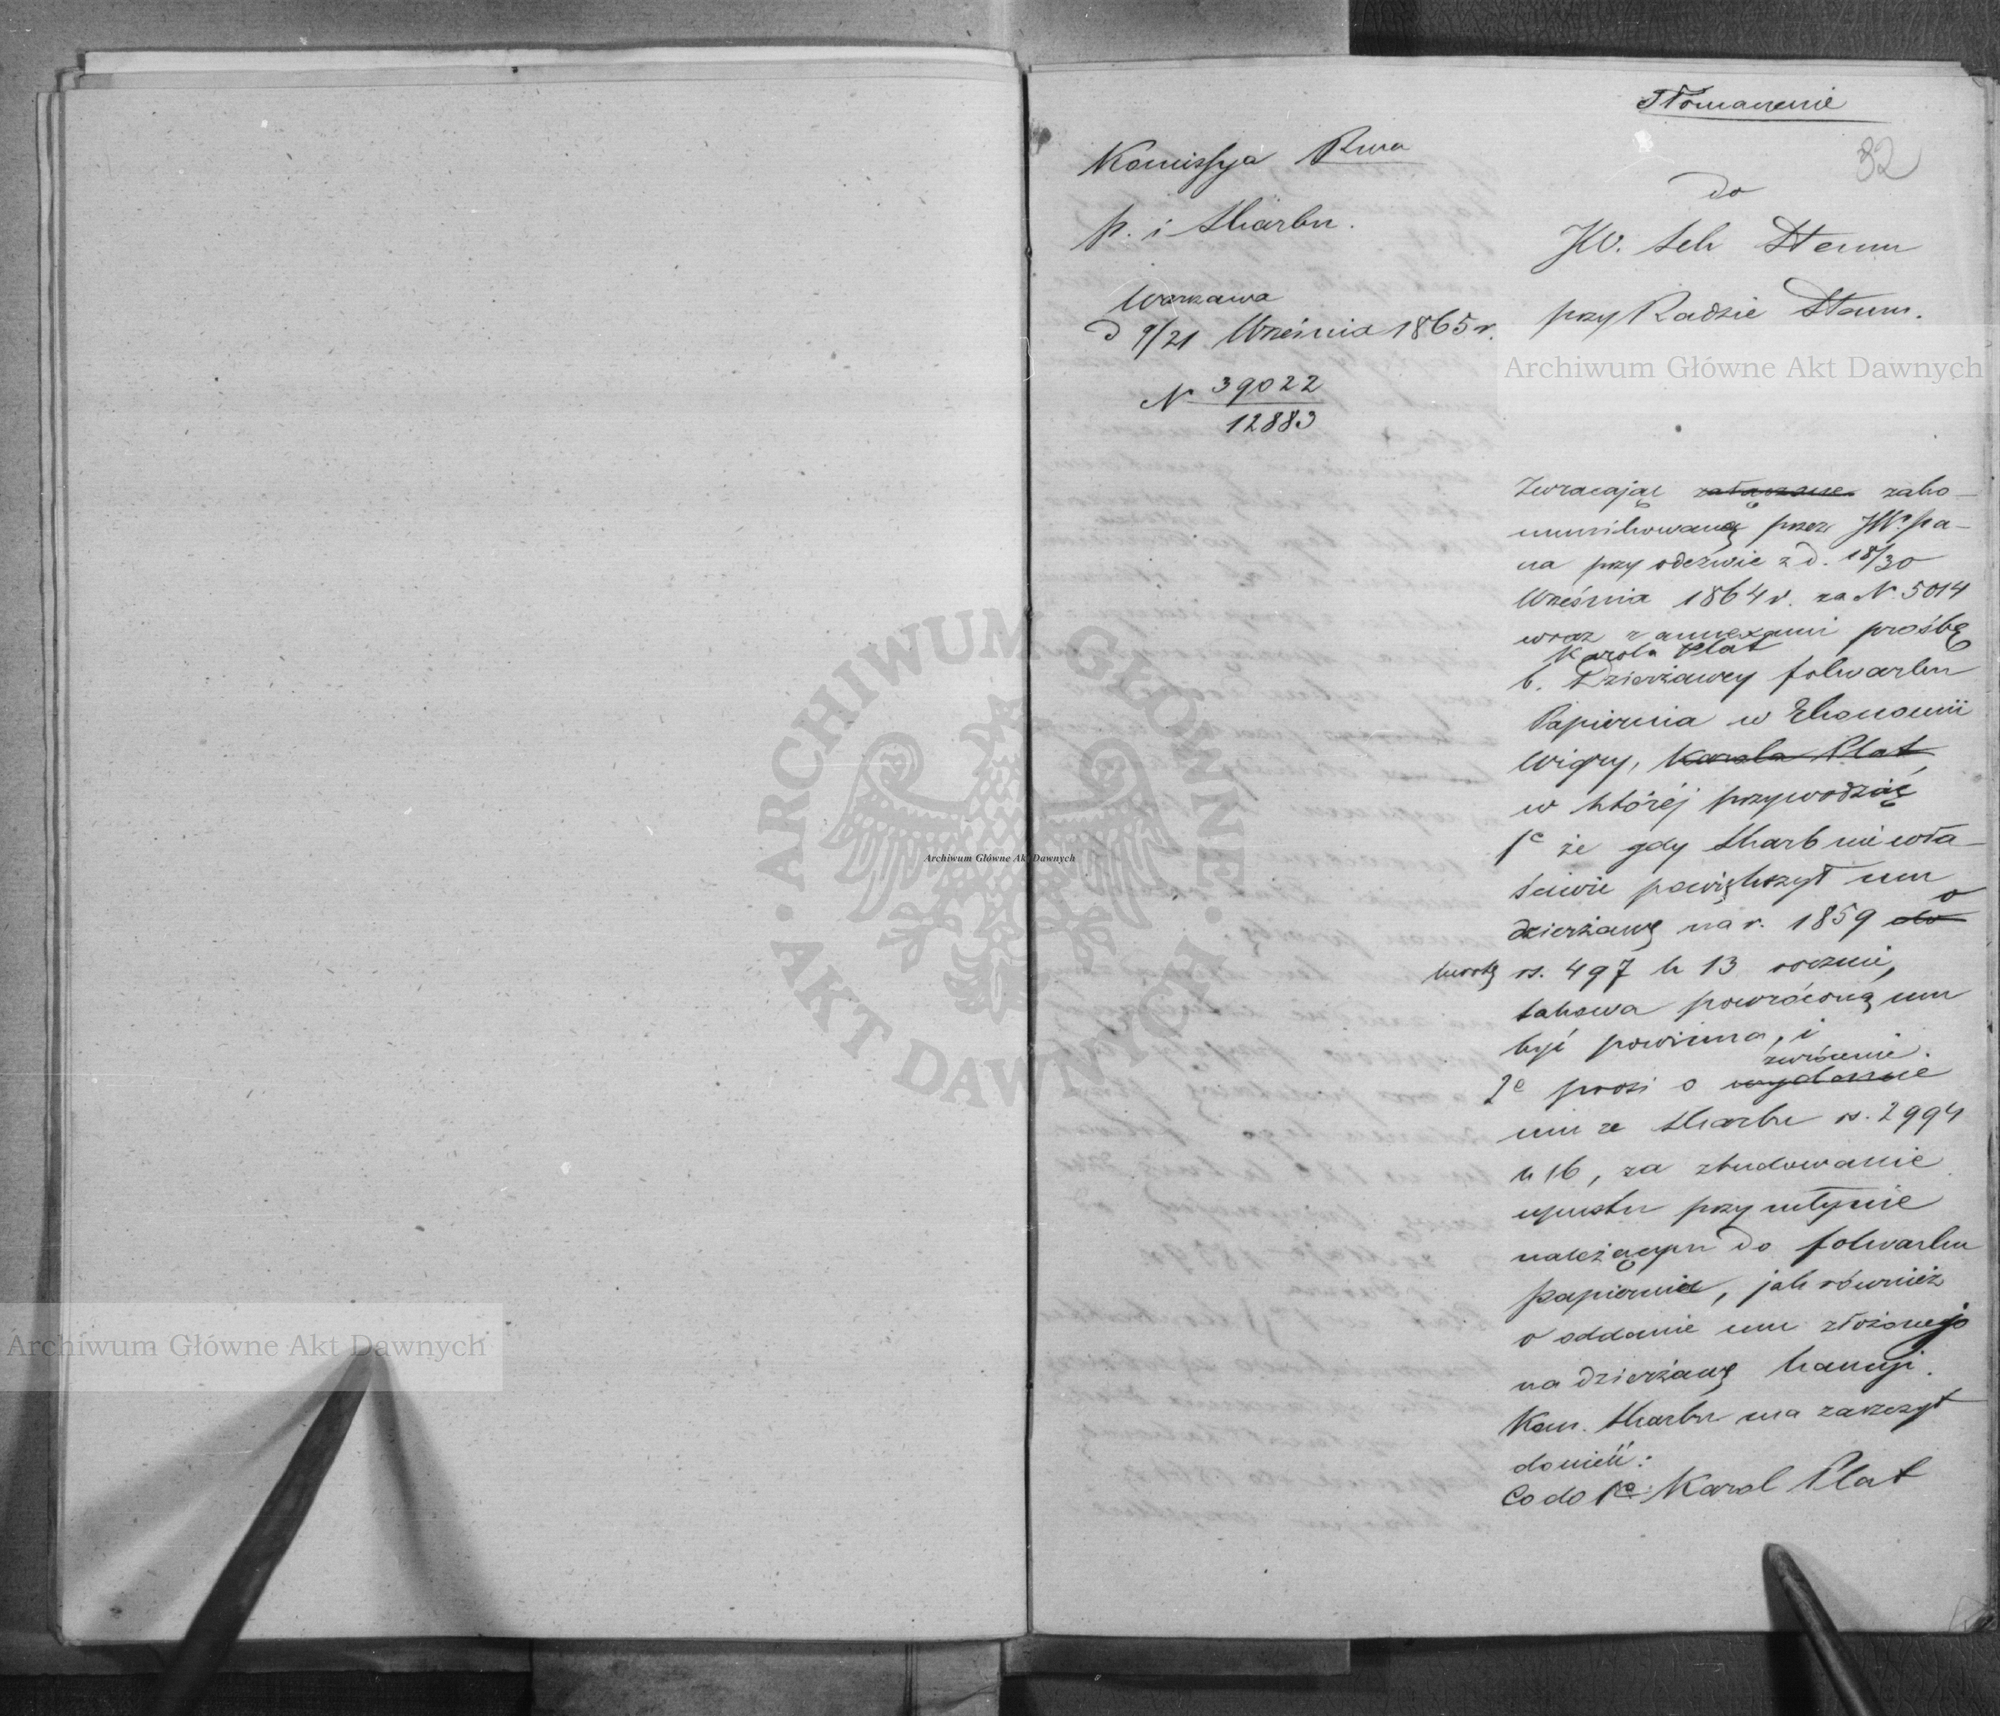 Tłomaczenie
32
Komissya Rzwa
P. i Skarbu.
Warszawa
d 9/21 Września 1865 r.
N 39022
12883
do
JW. Sek Stanu
przy Radzie Stanu.
Zwracając załączone zako-
munikowaną przez JW. Pa-
na przy odezwie z d. 18/30
Września 1864 r. za N. 5014
wraz z annexami prośbę
Karola Plat
b. Dzierżawcy folwarku
Papiernia w Ekonomii
Wigry, Karola Plat
w której przywodząc
1e że gdy Skarb niewła-
ściwie powiększył mu
dzierżawę na r. 1859 do o
kwotę rs. 497 k 13 rocznie,
takowa powróconą mu
być powinna, i
zwrócenie.
2e prosi o wydanie
mu ze Skarbu rs. 2994
k 16, za zbudowanie
upustu przy młynie
należącym do folwarku
Papiernia, jak również
o oddanie mu złożonej
na dzierżawę kaucyi.
Kom. Skarbu ma zaszczyt
donieść:
Co do 1e. Karol Plat
Archiwum Główne Akt Dawnych
Archiwum Główne Akt Dawnych
Archiwum Główne Akt Dawnych
ARCHIWUM GŁÓWNE AKT DAWNYCH